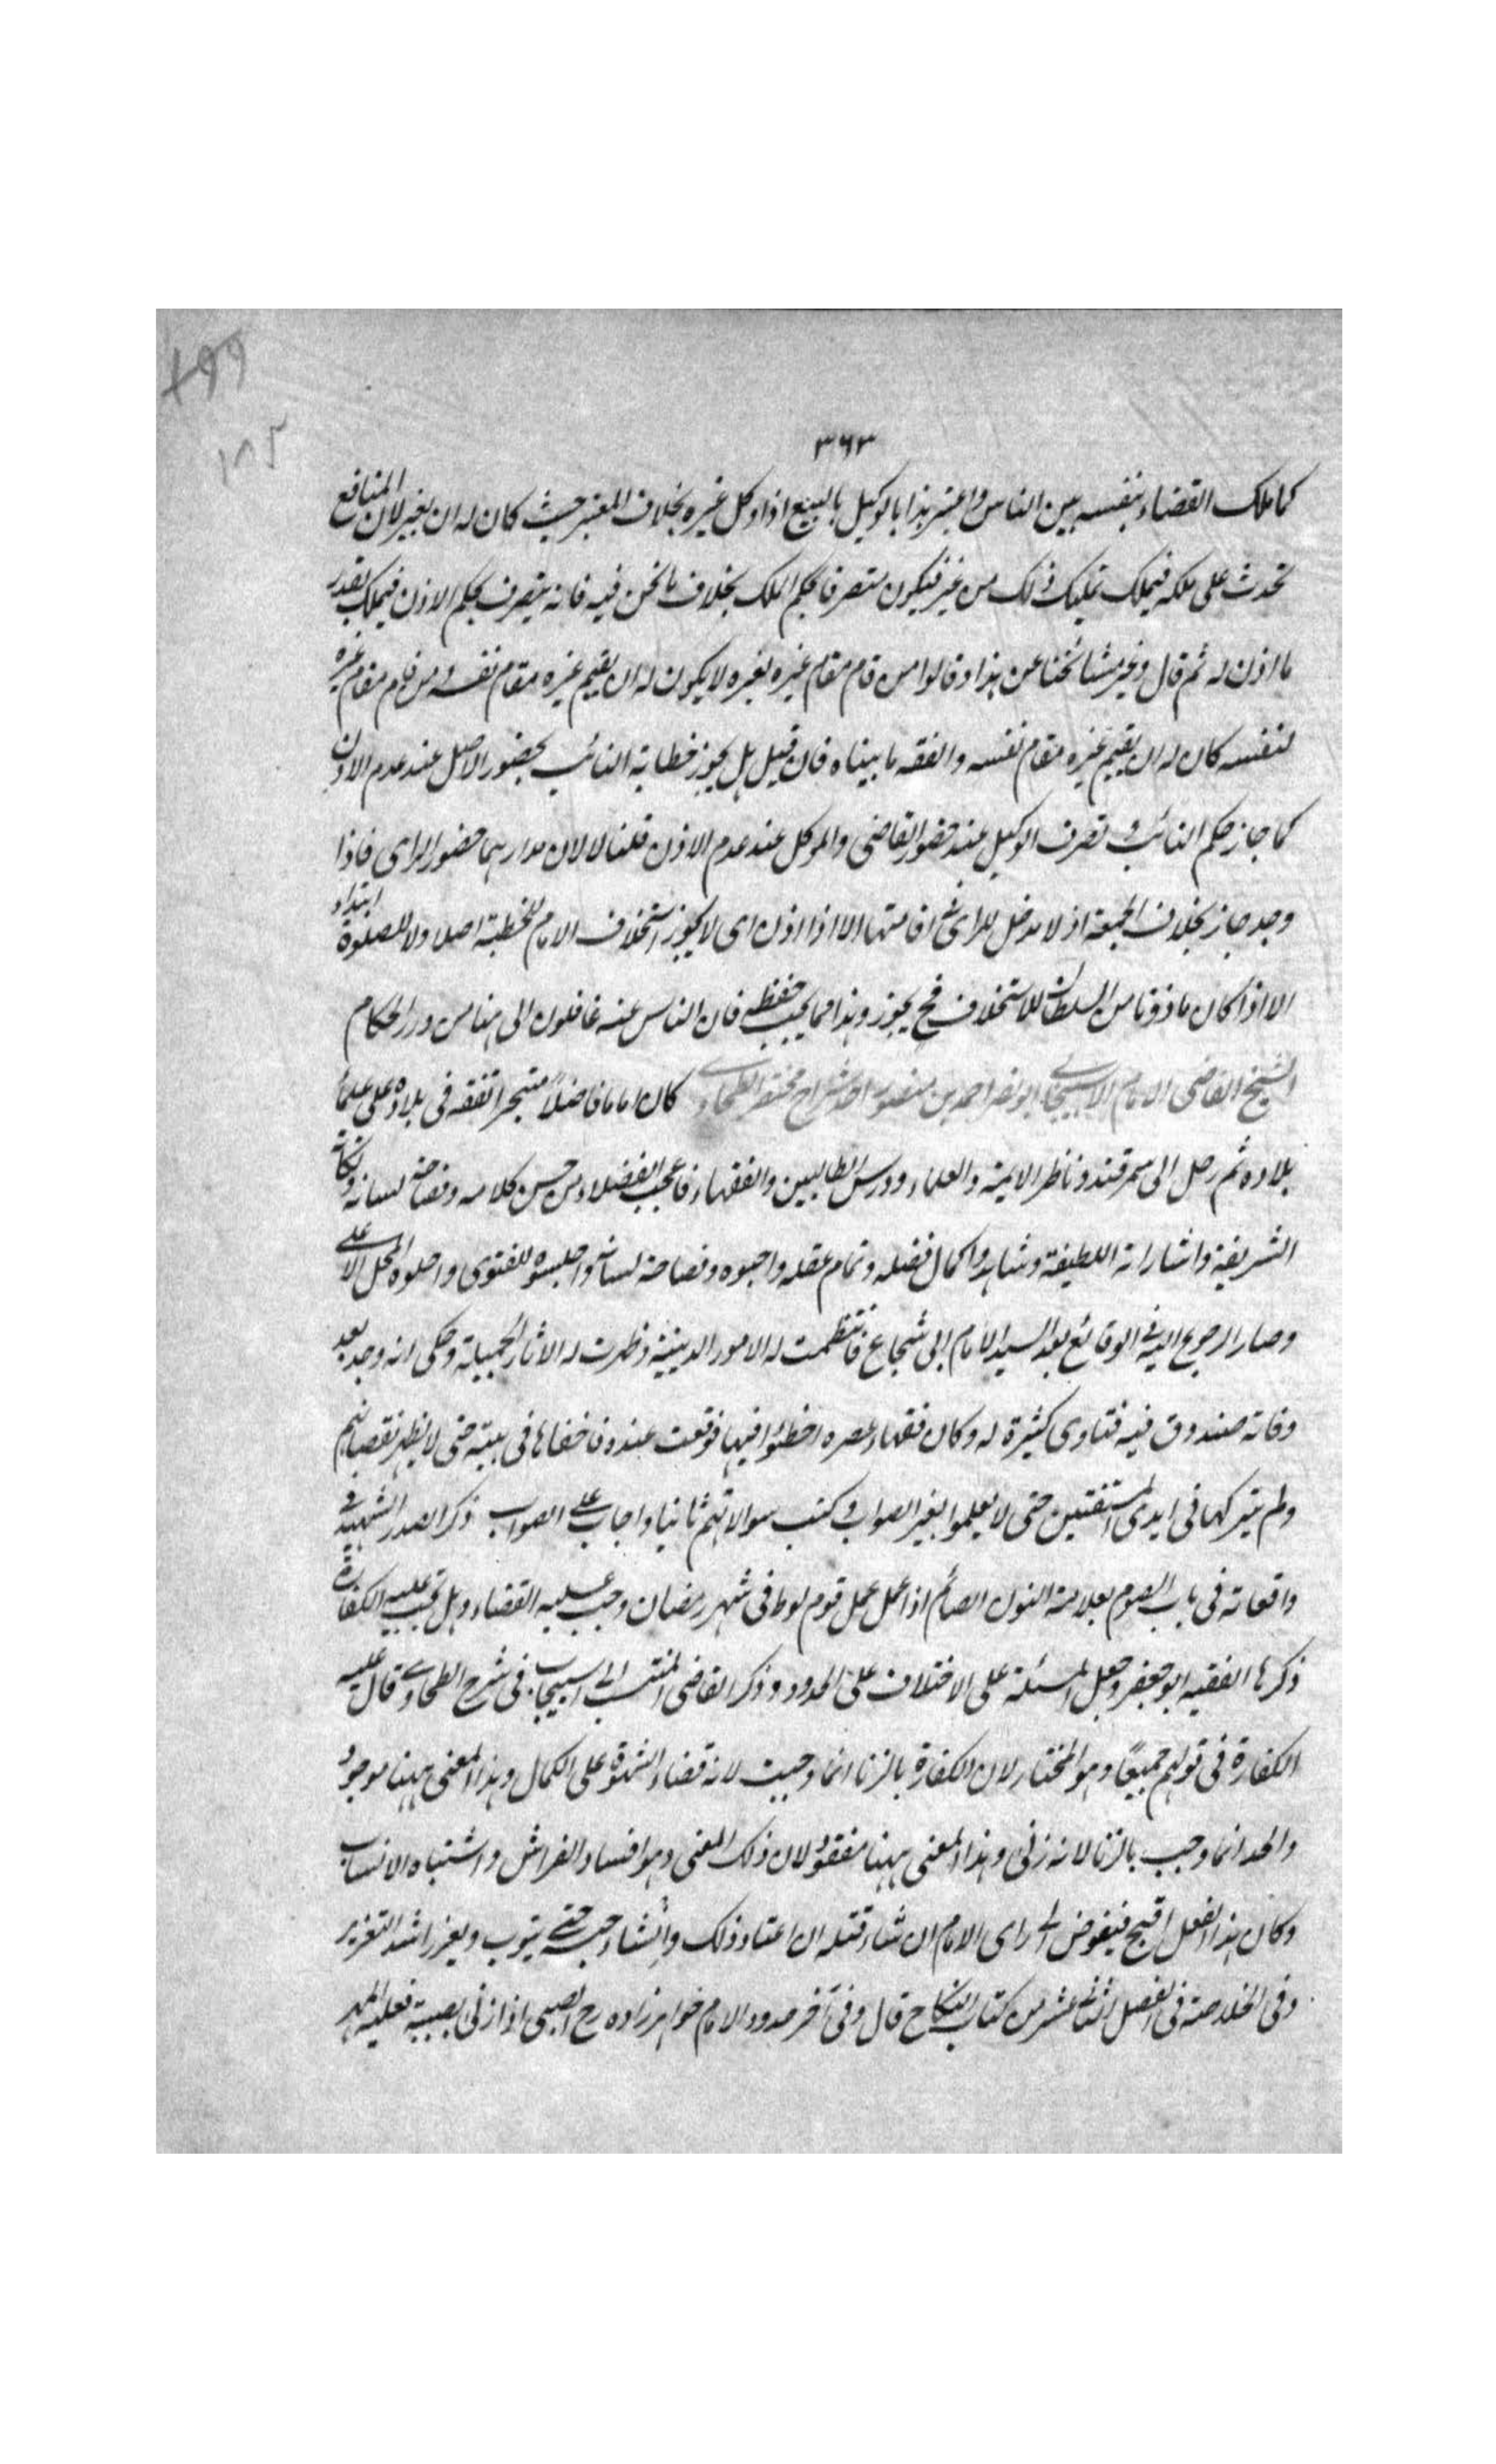 ٣٦٣
كما ملك القضاء بنفسه بين الناس واعتبر هذا بالوكيل بالبيع اذا وكل غيره بخلاف المعتبر حيث كان له ان يعير لان المنافع
تحدث على ملكه فيملك تمليك ذلك من غير فيكون متصرفا بحكم الملك بخلاف ما نحن فيه فانه يتصرف بحكم الاذن فيملك بقدر
ما اذن له ثم قال وغير مشائخنا عن هذا وقالوا من قام مقام غيره بغيره لا يكون له ان يقيم غيره مقام نفسه ومن قام مقام غيره
لنفسه كان له ان يقيم غيره مقام نفسه والفقه ما بيناه فان قيل هل يجوز خطابة النائب بحضور الاصل عند عدم الاذن
كما جاز حكم النائب وتصرف الوكيل عند حضور القاضى والموكل عند عدم الاذن قلنا لا لان مدارهما حضور الراى فاذا
وجد جاز بخلاف الجمعة اذ لا مدخل للراى فى اقامتها الا اذا اذن اى لا يجوز استخلاف الامام للخطبة اصلا ولا للصلوة ابتداء
الا اذا كان ماذونا من السلطان للاستخلاف فح يجوز وهذا مما يجب حفظه فان الناس عنه غافلون الى هنا من درر الحكام
الشيخ القاضى الامام الاسبيجابى ابو نصر احمد بن منصور احد شراح مختصر الطحاوى كان اماما فاضلاً متبحرا تفقه فى بلاده على علماء
بلاده ثم رحل الى سمرقند وناظر الايمة والعلماء ودرس الطالبين والفقهاء فاعجب الفضلاء من حسن كلامه وفصاحة لسانه ونكاته
الشريفة واشاراته اللطيفة وشاهدوا كمال فضله وتمام عقله واحبوه وفصاحة لسانه واجلسوه للفتوى واحلوه المحل الاعلى
وصار الرجوع اليه فى الوقائع بعد السيد الامام ابى شجاع فانتظمت له الامور الدينية وظهرت له الاثار الجميلة وحكى انه وجد بعد
وفاته صندوق فيه فتاوى كثيرة له وكان فقهاء عصره اخطئوا فيها فوقعت عنده فاخفاها فى بيته حتى لا يظهر نقصانهم
ولم يتركها فى ايدى المستفتين حتى لا يعلموا بغير الصواب وكتب سوالاتهم ثانيا واجاب على الصواب ذكر الصدر الشهيد فى
واقعاته فى باب الصوم بعلامة النون الصائم اذا عمل عمل قوم لوط فى شهر رمضان وجب عليه القضاء وهل تجب عليه الكفارة
ذكرها الفقيه ابو جعفر وجعل المسئلة على الاختلاف على الحدود وذكر القاضى المنتسب الى اسبيجاب فى شرح الطحاوى قال عليه
الكفارة فى قولهم جميعًا وهو المختار لان الكفارة بالزنا انما وجبت لانه قضاء الشهوة على الكمال وهذا المعنى ههنا موجود
والحد انما وجب بالزنا لانه زنى وهذا المعنى ههنا مفقود لان ذلك المعنى وهو افساد الفراش واشتباه الانساب
وكان هذا الفعل اقبح فيفوض الى راى الامام ان شاء قتله ان اعتاد ذلك وان شاء حبسه حتى يتوب ويعزر اشد التعزير
وفى الخلاصة فى الفصل الثانى عشر من كتاب النكاح قال وفى آخر حدود الامام خواهر زاده رح الصبى اذا زنى بصبية فعليه المهر